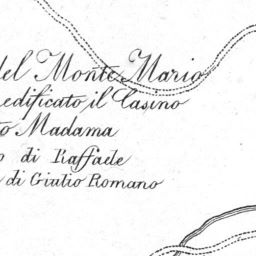 del Monte Mario
edificato il Casino
to Madama
o di Raffaele
di Giulio Romano